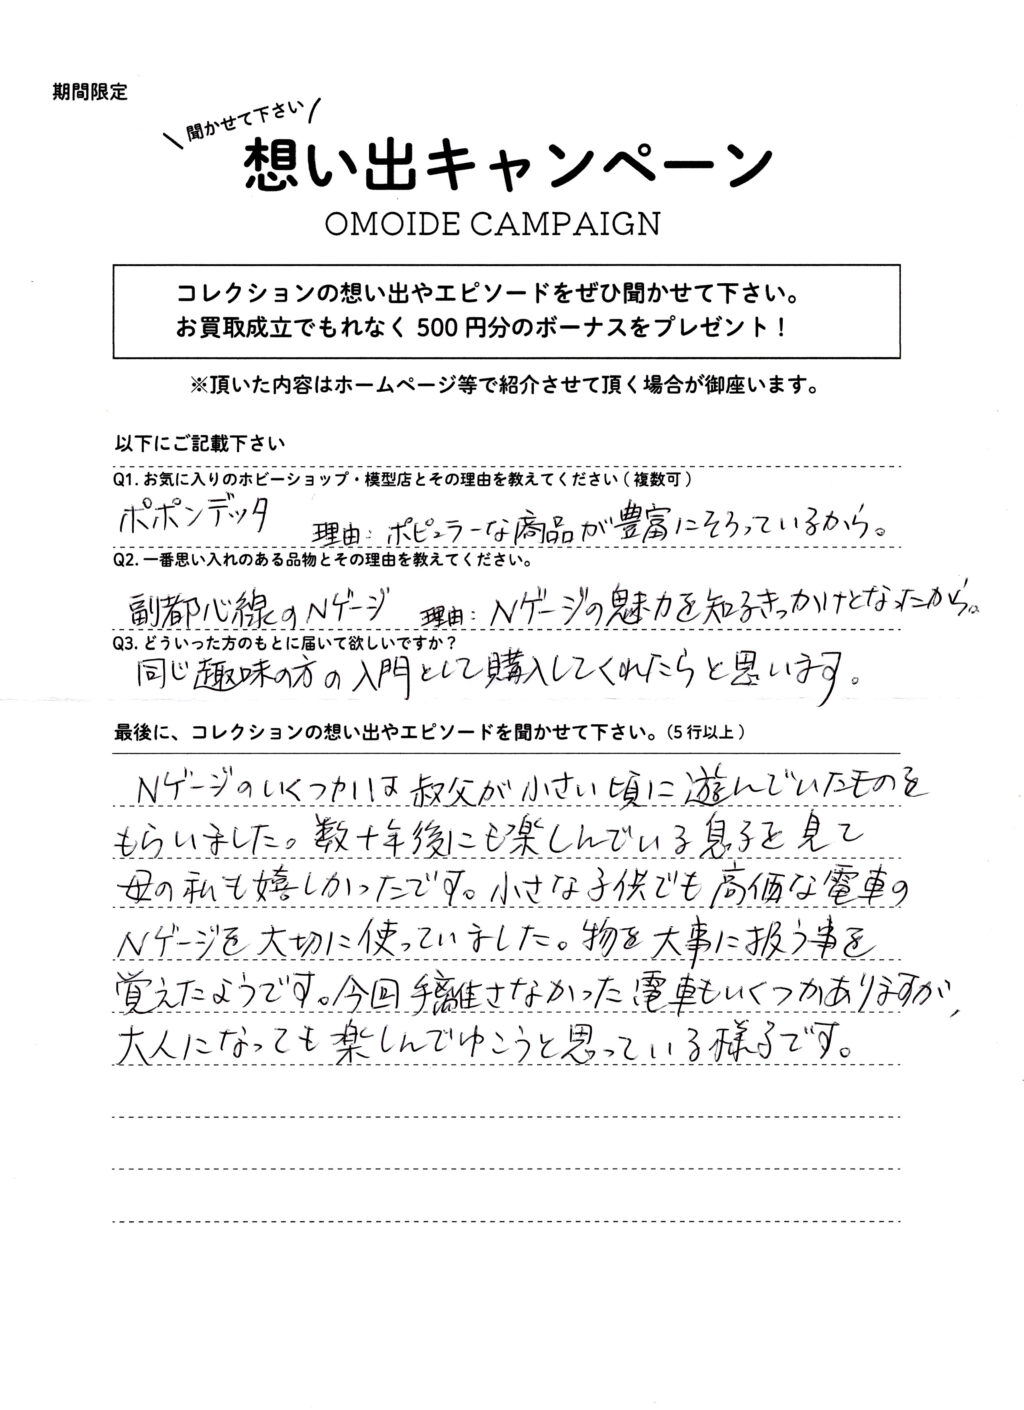 期間限定
聞かせて下さい
想い出キャンペーン
OMOIDE CAMPAIGN
コレクションの想い出やエピソードをぜひ聞かせて下さい。
お買取成立でもれなく 500 円分のボーナスをプレゼント！
※頂いた内容はホームページ等で紹介させて頂く場合が御座います。
以下にご記載下さい
Q1. お気に入りのホビーショップ・模型店とその理由を教えてください ( 複数可 )
ポポンデッタ 理由：ポピュラーな商品が豊富にそろっているから。
Q2. 一番思い入れのある品物とその理由を教えてください。
副都心線のNゲージ 理由：Nゲージの魅力を知るきっかけとなったから。
Q3. どういった方のもとに届いて欲しいですか？
同じ趣味の方の入門として購入してくれたらと思います。
最後に、コレクションの想い出やエピソードを聞かせて下さい。(5 行以上 )
Nゲージのいくつかは叔父が小さい頃に遊んでいたものを
もらいました。数十年後にも楽しんでいる息子を見て
母の私も嬉しかったです。小さな子供でも高価な電車の
Nゲージを大切に使っていました。物を大事に扱う事を
覚えたようです。今回手離さなかった電車もいくつかありますが、
大人になっても楽しんでゆこうと思っている様子です。